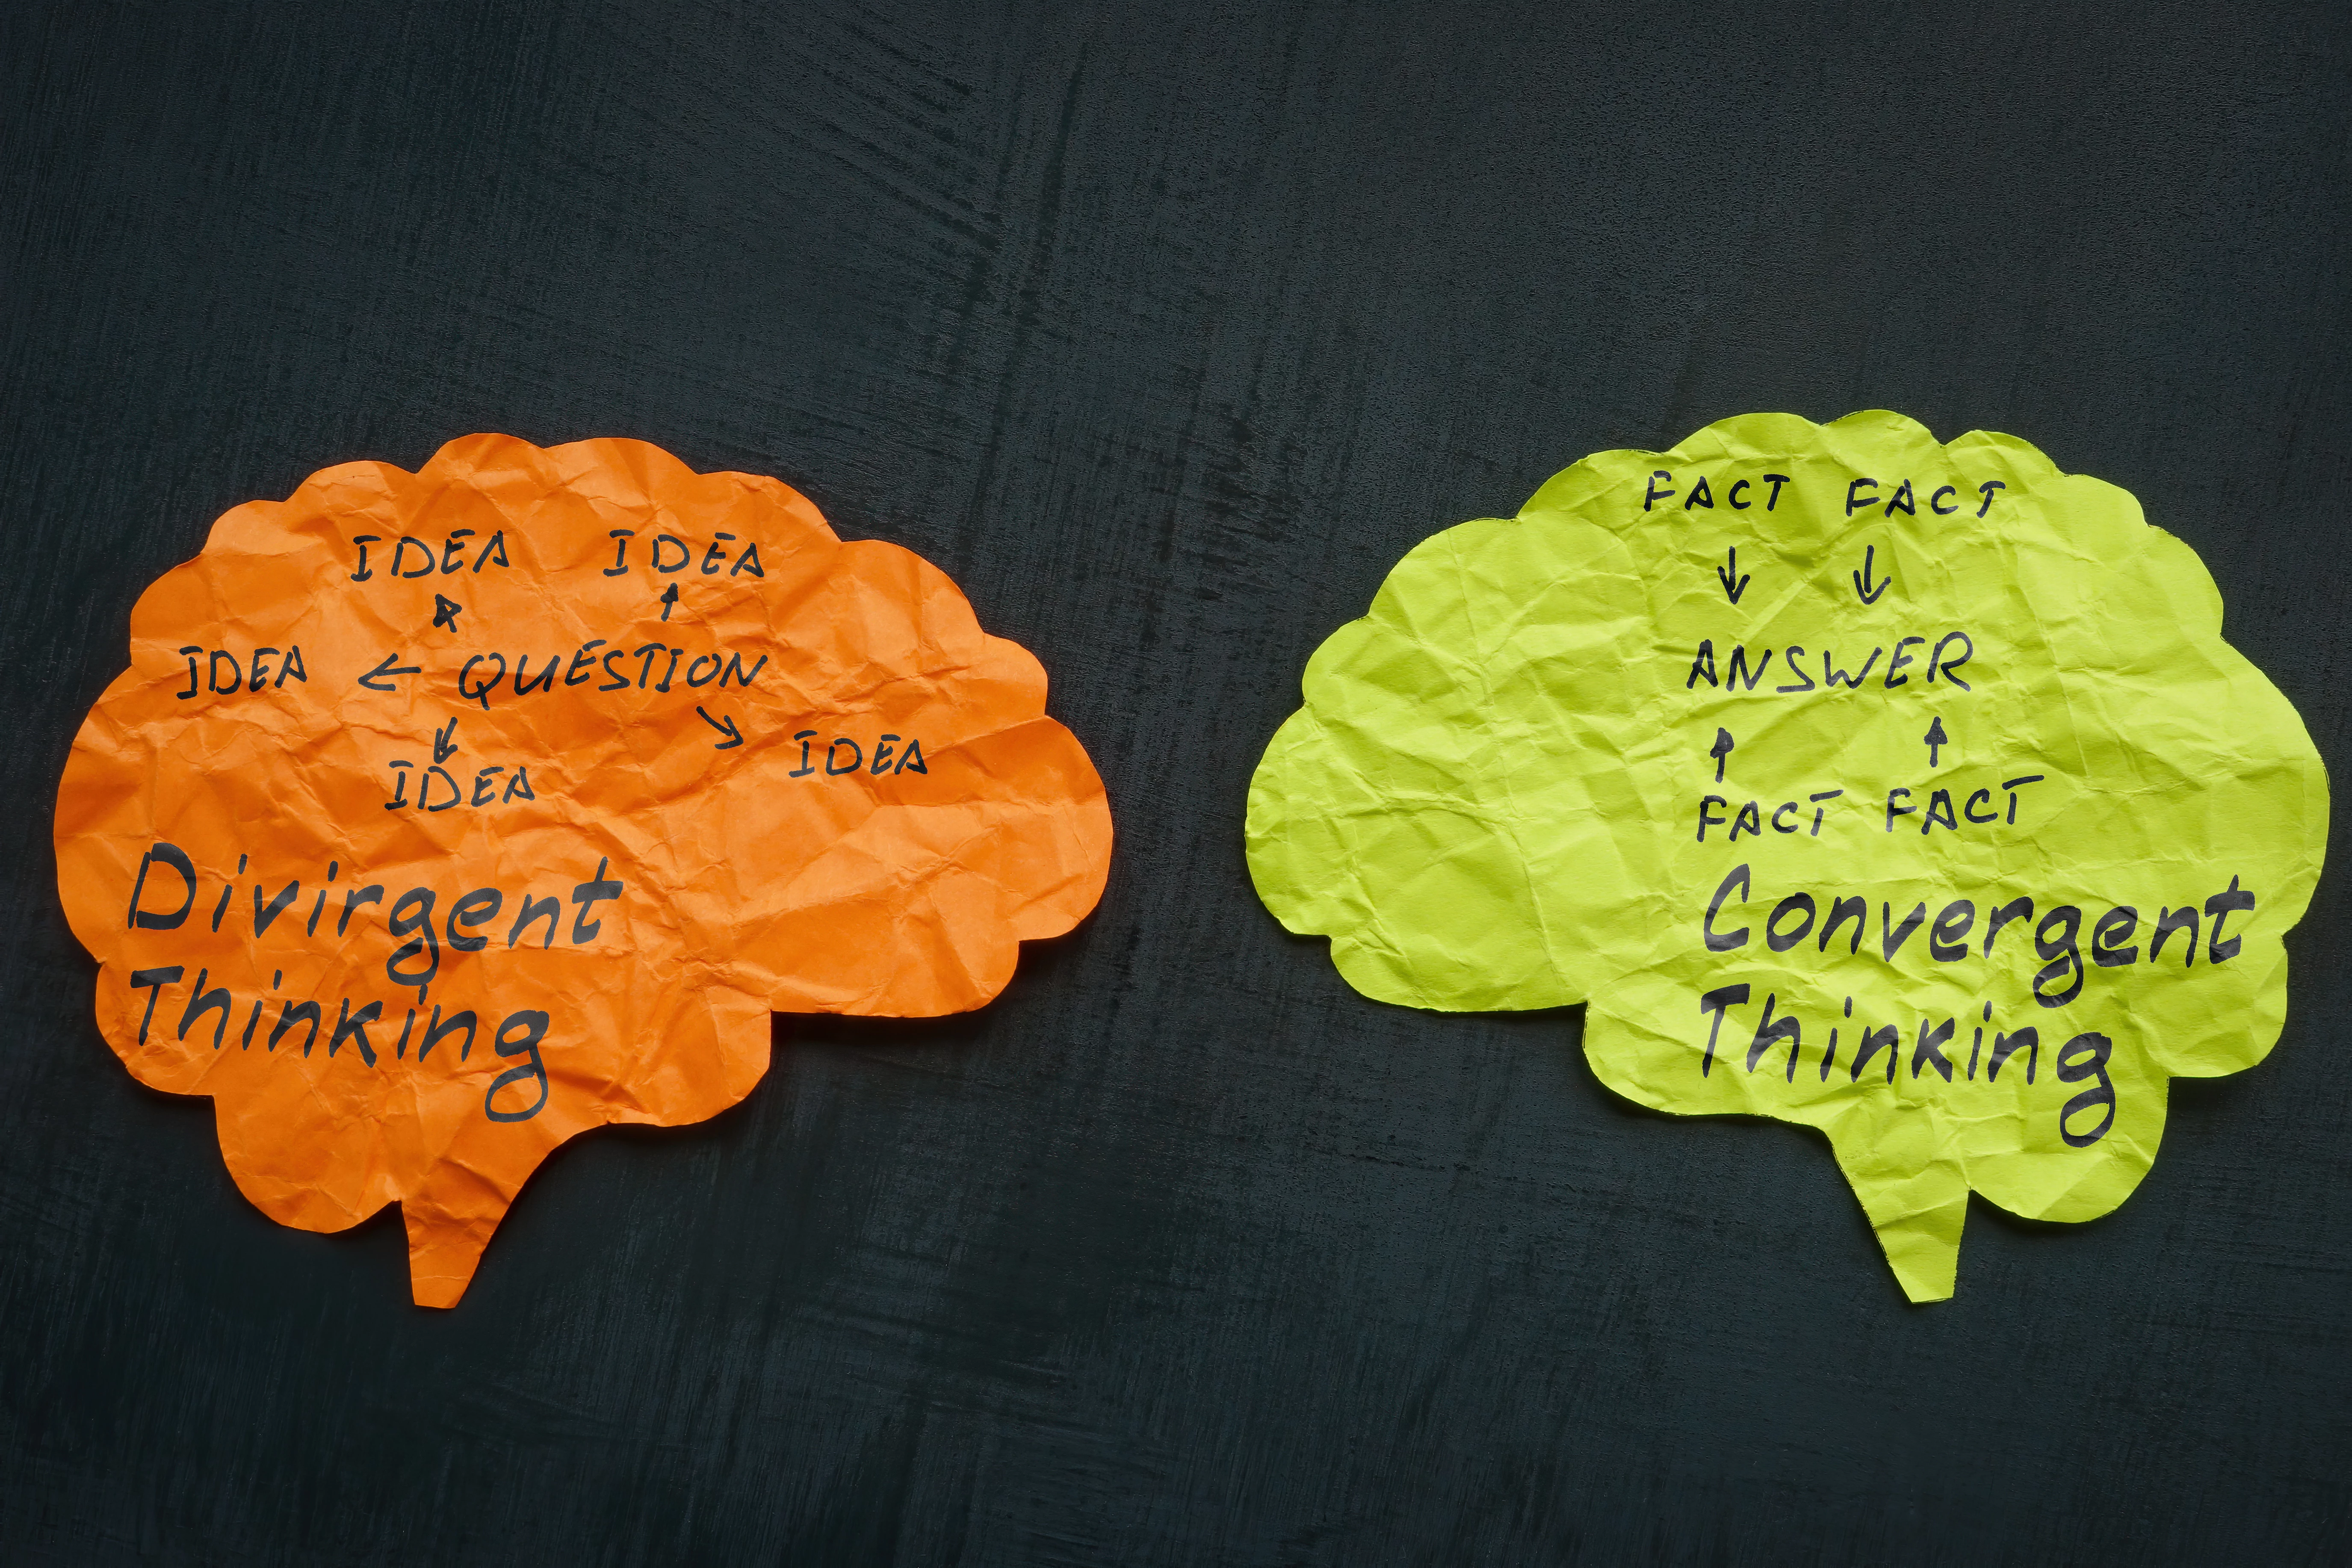 IDEA IDEA
IDEA ← QUESTION
IDEA
IDEA
Divirgent
Thinking
FACT FACT
ANSWER
FACT FACT
Convergent
Thinking